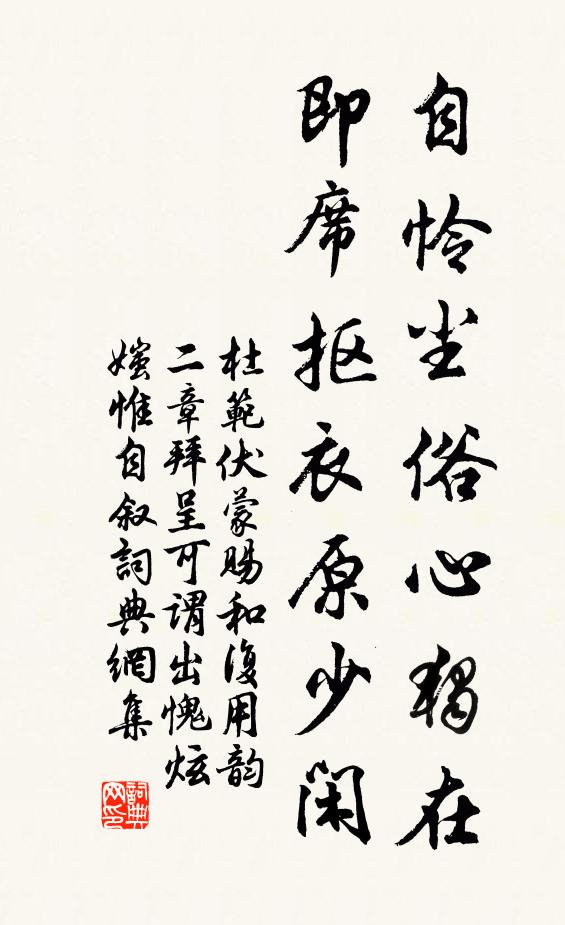 自怜尘俗心独在
即席抠衣原少闲
杜範伏蒙賜和復用韵
二章拜呈可謂出愧炫
媸惟自叙詞典網集
詞典网印